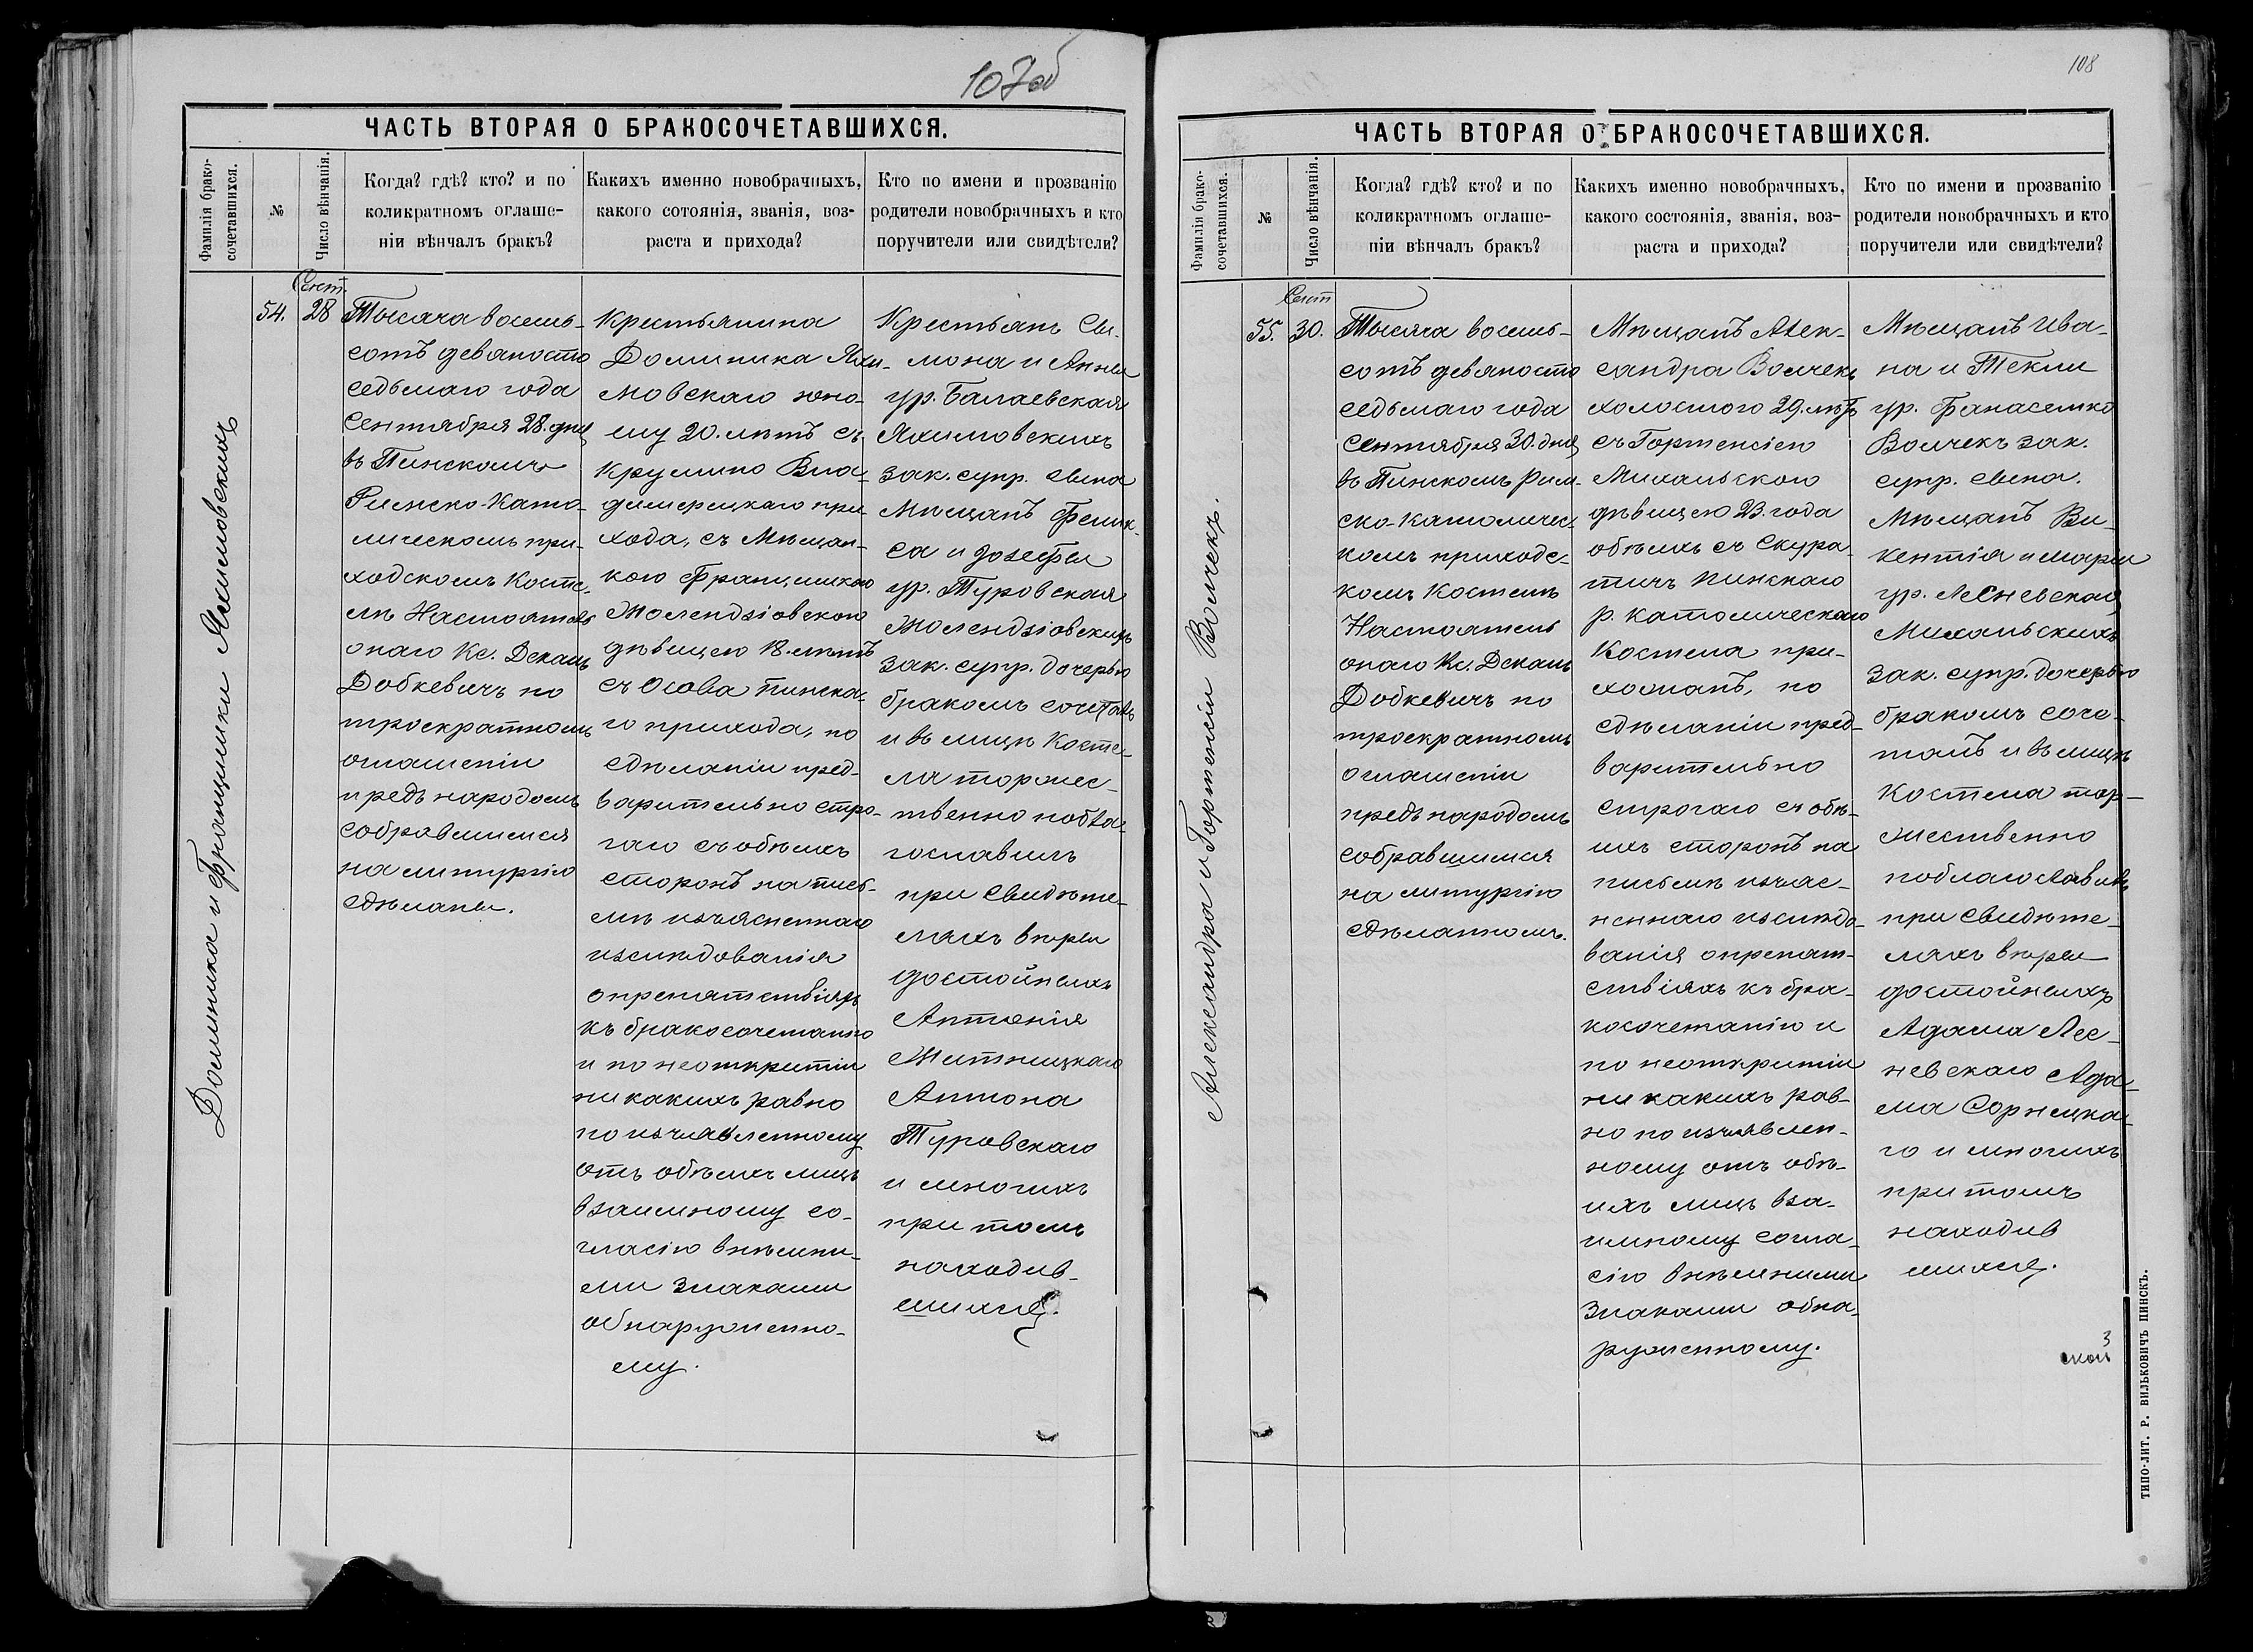 107об
ЧАСТЬ ВТОРАЯ О БРАКОСОЧЕТАВШИХСЯ.
Фамилія брако-
сочетавшихся.
№
Число вѣнчанія.
Когда? гдѣ? кто? и по
коликратномъ оглаше-
ніи вѣнчалъ бракъ?
Какихъ именно новобрачныхъ,
какого сотоянія, званія, воз-
раста и прихода?
Кто по имени и прозванію
родители новобрачныхъ и кто
поручители или свидѣтели?
Доминика и Францишки Яхимовскихъ
54.
Сент.
28
Тысяча восемь-
сотъ девяносто
седьмаго года
Сентября 28. дня
въ Пинскомъ
Римско-Като-
лическомъ при-
ходскомъ Косте-
лѣ Настоятель
онаго Кс. Деканъ
Добкевичъ по
троекратномъ
оглашеніи
предъ народомъ
собравшимся
на литургію
сдѣланы.
Крестьянина
Доминика Яхи-
мовскаго юно-
шу 20. лѣтъ съ
Крушино Вла-
димерецкаго при-
хода, съ Мѣщан-
кою Францишкою
Жолендзіовскою
дѣвицею 18. лѣтъ
съ Осова Пинска-
го прихода, по
сдѣланіи пред-
варительно стро-
гаго съ обѣихъ
сторонъ на пись-
мѣ изъясненнаго
изслѣдованія
о препятствіяхъ
къ бракосочетанію
и по неоткрытіи
никакихъ равно
по изъявленному
отъ обѣихъ лицъ
взаимному со-
гласію внѣшни-
ми знаками
обнаруженно-
му.
Крестьянъ Си-
мона и Анны
ур. Балаевская
Яхимовскихъ
зак. супр. сына
Мѣщанъ Фелик-
са и Іозефы
ур. Туровская
Жолендзіовскихъ
зак. супр. дочерью
бракомъ сочеталъ
и въ лицѣ Косте-
ла торжес-
твенно побла-
гославилъ
при свидѣте-
ляхъ вѣры
достойныхъ
Антонія
Житницкаго
Антона
Туровскаго
и многихъ
при томъ
находив-
шихся.
108
ЧАСТЬ ВТОРАЯ О БРАКОСОЧЕТАВШИХСЯ.
Фамилія брако-
сочетавшихся.
№
Число вѣнчанія.
Когда? гдѣ? кто? и по
коликратномъ оглаше-
ніи вѣнчалъ бракъ?
Какихъ именно новобрачныхъ,
какого состоянія, званія, воз-
раста и прихода?
Кто по имени и прозванію
родители новобрачныхъ и кто
поручители или свидѣтели?
Александра и Гортенсіи Волчекъ.
55.
Сент
30.
Тысяча восемь-
сотъ девяносто
седьмаго года
Сентября 30. дня
въ Пинскомъ Рим-
ско-католичес-
комъ приходс-
комъ Костелѣ
Настоятель
онаго Кс. Деканъ
Добкевичъ по
троекратномъ
оглашеніи
предъ народомъ
собравшимся
на литургію
сдѣланномъ.
Мѣщанъ Алек-
сандра Волчекъ
холостого 29. лѣтъ
съ Гортенсіею
Михальскою
дѣвицею 23. года
обѣихъ съ Скура-
тичъ Пинскаго
р. католическаго
Костела при-
хожанъ, по
сдѣланіи пред-
варительно
строгаго съ обѣ-
ихъ сторонъ на
письмѣ изъяс-
неннаго изслѣдо-
ванія о препят-
ствіяхъ къ бра-
косочетанію и
по неоткрытіи
никакихъ рав-
но по изъявлен-
ному отъ обѣ-
ихъ лицъ вза-
имному согла-
сію внѣшними
знаками обна-
руженному.
Мѣщанъ Ива-
на и Текли
ур. Фанасенко
Волчекъ зак.
супр. сына.
Мѣщанъ Ви-
кентія и Маріи
ур. Лесневская
Михальскихъ
зак. супр. дочерью
бракомъ соче-
талъ и въ лицѣ
Костела тор-
жественно
поблагославилъ
при свидѣте-
ляхъ вѣры
достойныхъ
Адама Лес-
невскаго Ада-
ма Сорнецка-
го и многихъ
при томъ
находив
шихся.
3
ТИПО-ЛИТ. Р. ВИЛЬКОВИЧЪ ПИНСКЪ.